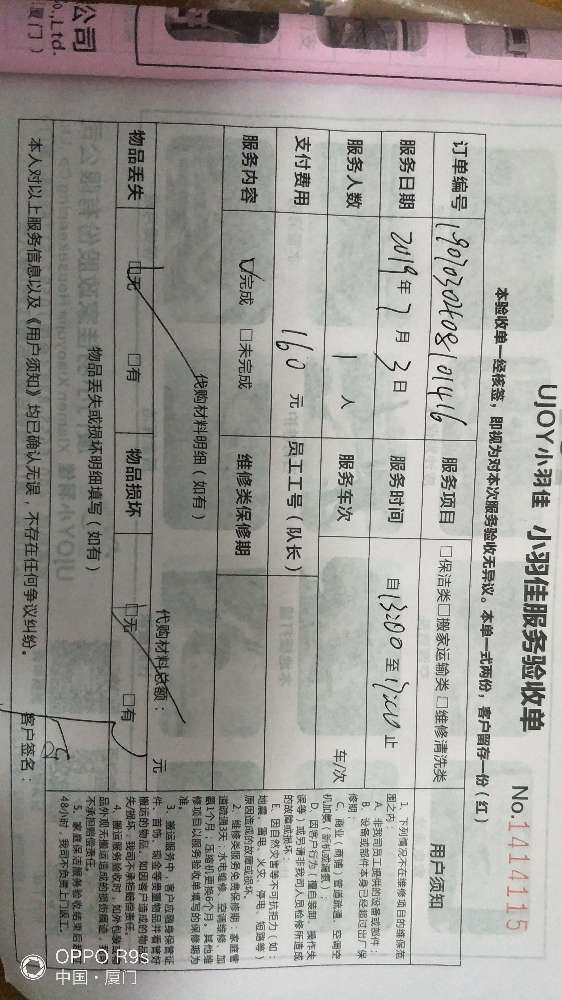 公司
.,Ltd.
厦门）
UJOY小羽佳 小羽佳服务验收单
No.1414115
本验收单一经核签，即视为对本次服务验收无异议。本单一式两份，客户留存一份（红）
订单编号 服务项目 □保洁类□搬家运输类□维修清洗类
服务日期 2019年7月3日 服务时间 自13:00至17:00止
服务人数 1人 服务车次 车/次
支付费用 160元 员工工号（队长）
服务内容 ☑完成 □未完成 维修类保修期
代购材料明细（如有） 代购材料总额： 元
物品丢失 □无 □有 物品损坏 □无 □有
物品丢失或损坏明细填写（如有）
本人对以上服务信息以及《用户须知》均已确认无误，不存在任何争议纠纷。 客户签名：
用户须知
1、下列情况不在维修项目的维保范
围之内：
A、非我司员工提供的设备或部件；
B、设备或部件本身已经超过出厂保
修期；
C、商业（商铺）管道疏通、空调空
机加氟（新机或漏氟）；
D、因客户行为（擅自装卸、操作失
误等）或另请非我司人员检修所造成
的故障或损坏；
E、因自然灾害等不可抗拒力（如：
地震、雷电、火灾、停电、短路等）
原因造成的故障或损坏。
2、维修类服务免费保修期：家庭管
道疏通3天，水电维修、空调维修、加
氟1个月，压缩机更换6个月。其他维
修项目以服务验收单填写的保修期为
准。
3、搬运服务中，客户应随身保管证
件、首饰、现金等贵重物品并看管好
搬运的物品，如因客户造成的物品
失/损坏，我司不承担赔偿责任。
4、搬运服务验收时，如外包装
品外观无搬运造成的损伤痕迹，
不承担赔偿责任。
5、家庭保洁服务验收结束后超过
48小时，我司不负责上门返工。
OPPO R9s
中国·厦门